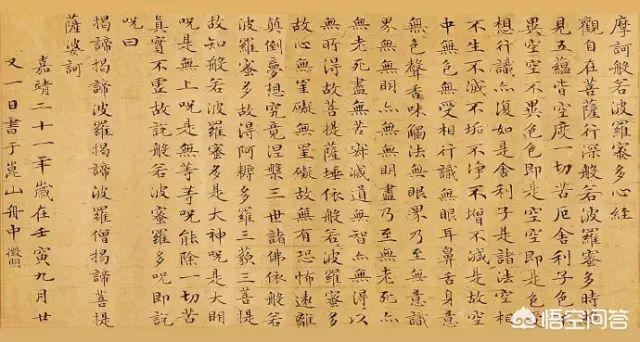 摩訶般若波羅蜜多心經
觀自在菩薩行深般若波羅蜜多時照
見五蘊皆空度一切苦厄舍利子色不
異空空不異色色即是空空即是色受
想行識亦復如是舍利子是諸法空相
不生不滅不垢不淨不增不減是故空
中無色無受相行識無眼耳鼻舌身意
無色聲香味觸法無眼界乃至無意識
界無無明亦無無明盡乃至無老死亦
無老死盡無苦寂滅道無智亦無得以
無所得故菩提薩埵依般若波羅蜜多
故心無罣礙無罣礙故無有恐怖遠離
顛倒夢想究竟涅槃三世諸佛依般若
波羅蜜多故得阿耨多羅三藐三菩提
故知般若波羅蜜多是大神呪是大明
呪是無上呪是無等等呪能除一切苦
真實不虛故說般若波蜜羅多呪即說
呪曰
揭諦揭諦波羅揭諦波羅僧揭諦菩提
薩婆訶
嘉靖二十一年歲在壬寅九月廿
又一日書于崑山舟中 徵明
悟空问答